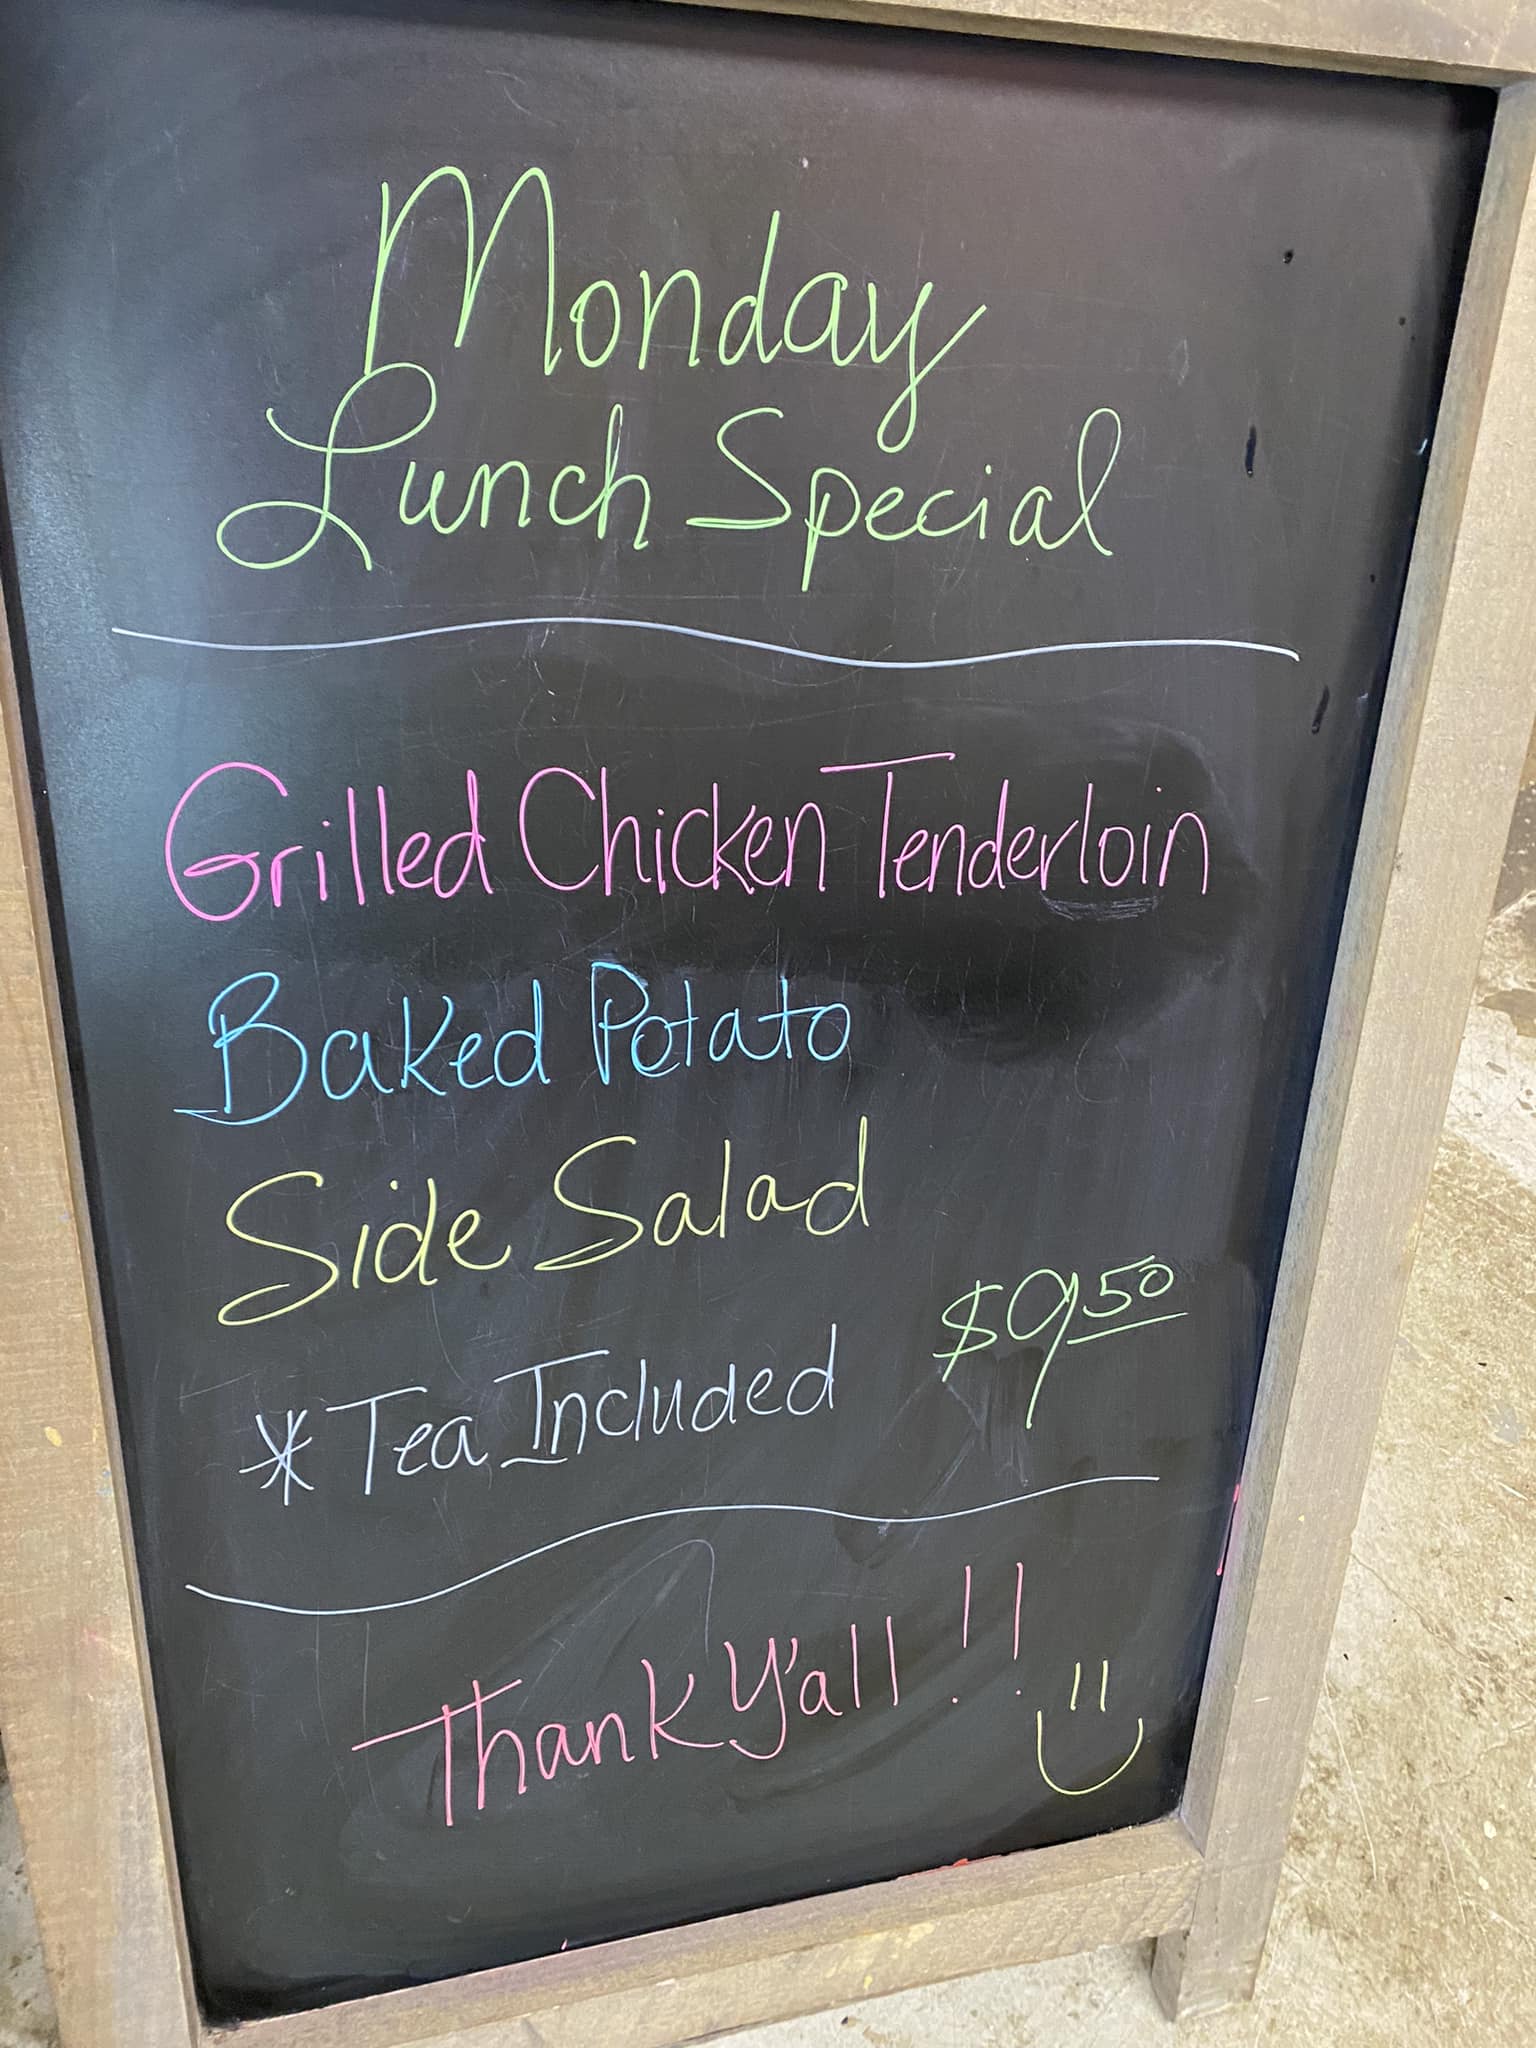 Monday
Lunch Special
Grilled Chicken Tenderloin
Baked Potato
Side Salad
$9.50
* Tea Included
Thank Y'all!!